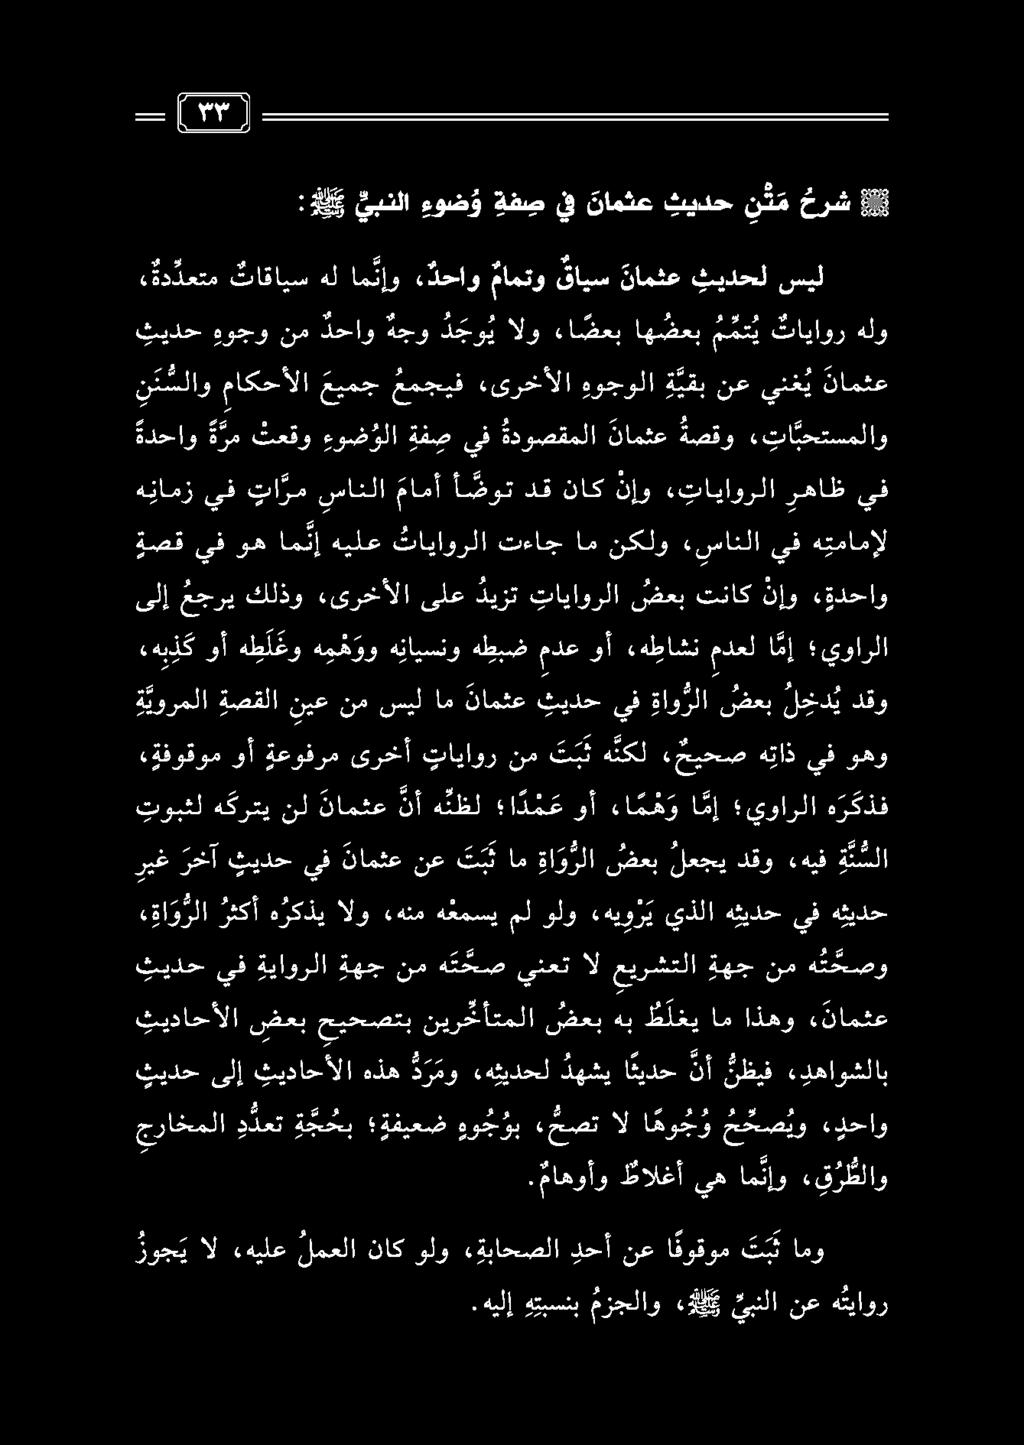 ٣٣
شرحُ مَتْنِ حديثِ عثمانَ في صِفةِ وُضوءِ النبيِّ ﷺ:
ليس لحديثِ عثمانَ سياقٌ وتمامٌ واحدٌ، وإنَّما له سياقاتٌ متعدِّدةٌ،
وله رواياتٌ يُتمِّمُ بعضُها بعضًا، ولا يُوجَدُ وجهٌ واحدٌ من وجوهِ حديثِ
عثمانَ يُغني عن بقيَّةِ الوجوهِ الأخرى، فيجمعُ جميعَ الأحكامِ والسُّنَنِ
والمستحبَّاتِ، وقصةُ عثمانَ المقصودةُ في صِفةِ الوُضوءِ وقعتْ مرَّةً واحدةً
في ظاهرِ الرواياتِ، وإنْ كان قد توضَّأ أمامَ الناسِ مرَّاتٍ في زمانِه
لإمامتِه في الناسِ، ولكن ما جاءت الرواياتُ عليه إنَّما هو في قصةٍ
واحدةٍ، وإنْ كانت بعضُ الرواياتِ تزيدُ على الأخرى، وذلك يرجعُ إلى
الراوي؛ إمَّا لعدمِ نشاطِه، أو عدمِ ضبطِه ونسيانِه ووَهْمِه وغَلَطِه أو كَذِبِه،
وقد يُدخِلُ بعضُ الرُّواةِ في حديثِ عثمانَ ما ليس من عينِ القصةِ المرويَّةِ
وهو في ذاتِه صحيحٌ، لكنَّه ثَبَتَ من رواياتٍ أخرى مرفوعةٍ أو موقوفةٍ،
فذكَرَه الراوي؛ إمَّا وَهْمًا، أو عَمْدًا؛ لظنِّه أنَّ عثمانَ لن يتركَه لثبوتِ
السُّنَّةِ فيه، وقد يجعلُ بعضُ الرُّوَاةِ ما ثَبَتَ عن عثمانَ في حديثٍ آخرَ غيرِ
حديثِه في حديثِه الذي يَرْوِيه، ولو لم يسمعْه منه، ولا يذكرُه أكثرُ الرُّوَاةِ،
وصحَّتُه من جهةِ التشريعِ لا تعني صحَّتَه من جهةِ الروايةِ في حديثِ
عثمانَ، وهذا ما يغلَطُ به بعضُ المتأخِّرين بتصحيحِ بعضِ الأحاديثِ
بالشواهدِ، فيظنُّ أنَّ حديثًا يشهدُ لحديثِه، ومَرَدُّ هذه الأحاديثِ إلى حديثٍ
واحدٍ، ويُصحِّحُ وُجُوهًا لا تصحُّ، بوُجُوهٍ ضعيفةٍ؛ بحُجَّةِ تعدُّدِ المخارجِ
والطُّرُقِ، وإنَّما هي أغلاطٌ وأوهامٌ.
وما ثَبَتَ موقوفًا عن أحدِ الصحابةِ، ولو كان العملُ عليه، لا يَجوزُ
روايتُه عن النبيِّ ﷺ، والجزمُ بنسبتِهِ إليه.